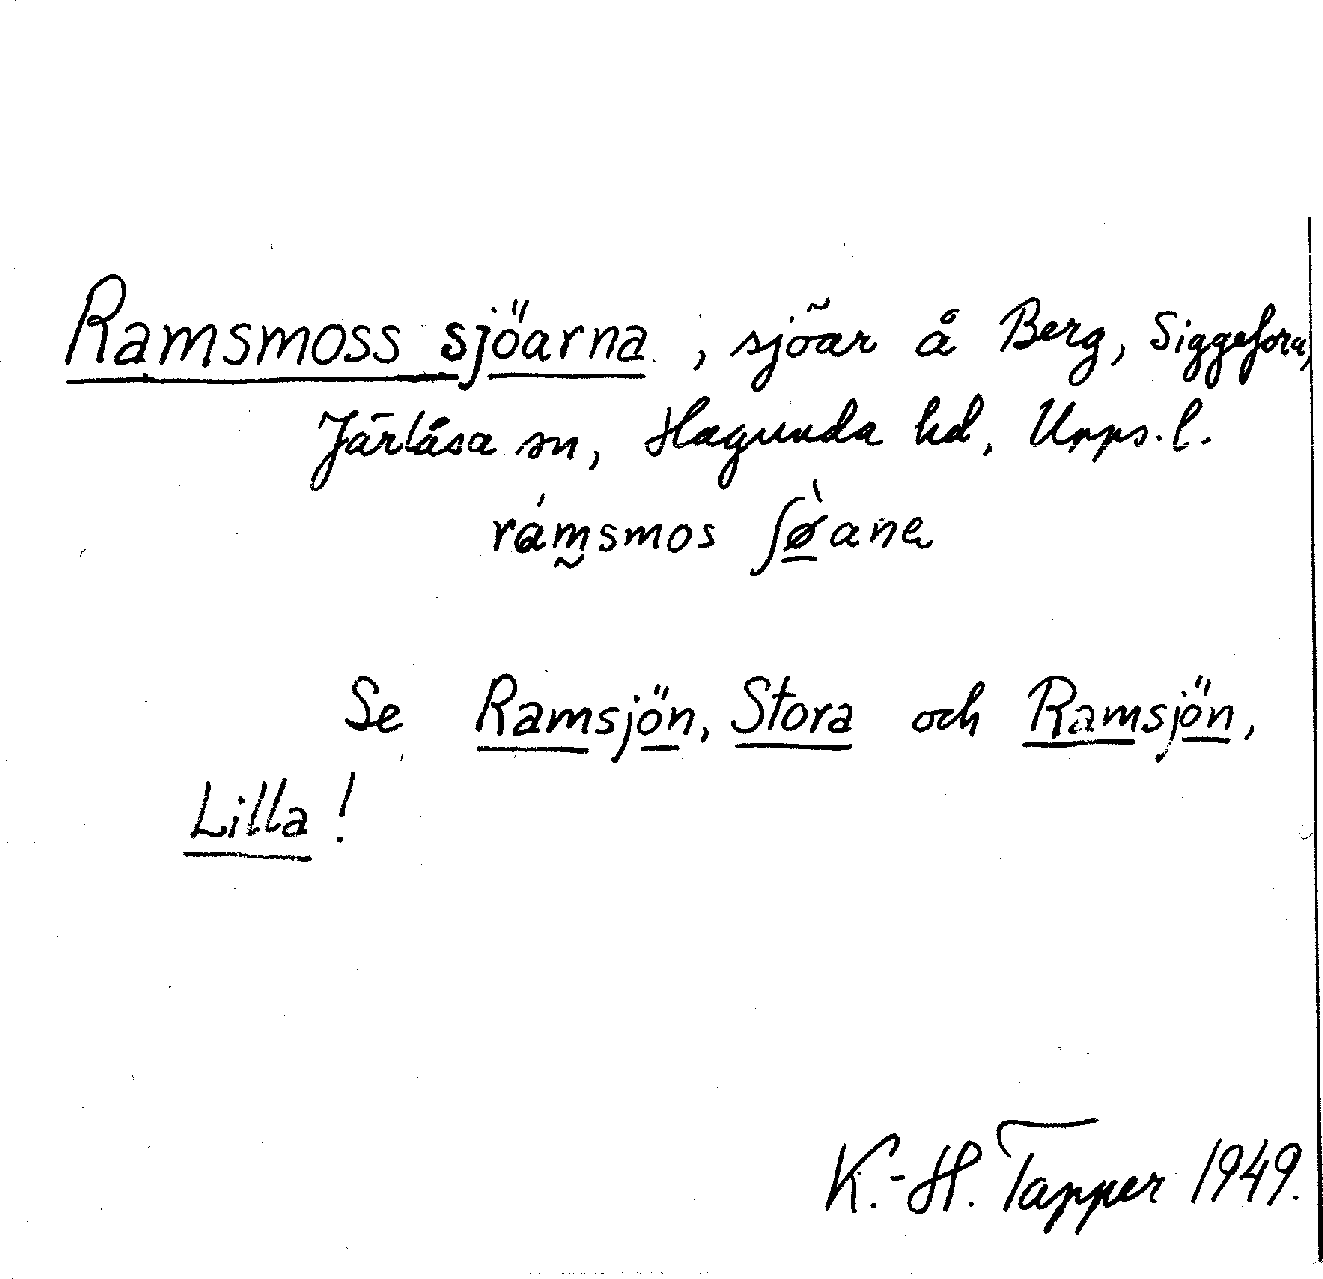 Ramsmoss sjöarna, sjöar å Berg, Siggefora,
Järlåsa sn, Hagunda hd, Upps. l.
rámsmos ʃø̀anₑ
Se Ramsjön, Stora och Ramsjön,
Lilla!
K.-H. Tapper 1949.